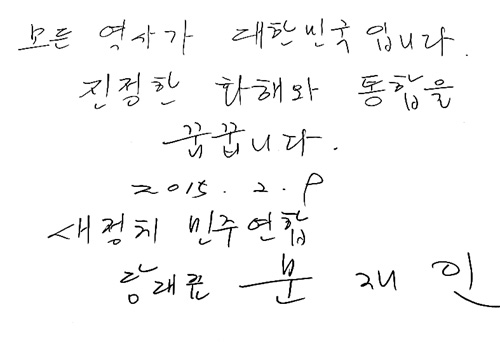 모든 역사가 대한민국입니다.
진정한 화해와 통합을
꿈꿉니다.
2015. 2. 9
새정치 민주연합
당대표 문 재 인